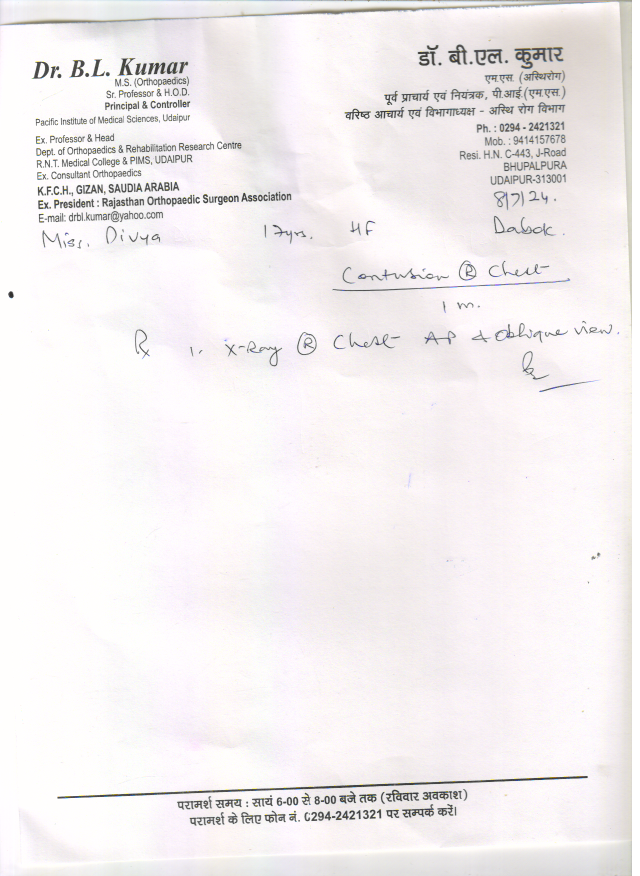 Dr. B.L. Kumar
M.S. (Orthopaedics)
Sr. Professor & H.O.D.
Principal & Controller
Pacific Institute of Medical Sciences, Udaipur
Ex. Professor & Head
Dept. of Orthopaedics & Rehabilitation Research Centre
R.N.T. Medical College & PIMS, UDAIPUR
Ex. Consultant Orthopaedics
K.F.C.H., GIZAN, SAUDIA ARABIA
Ex. President : Rajasthan Orthopaedic Surgeon Association
E-mail: drbl.kumar@yahoo.com
डॉ. बी.एल. कुमार
एम.एस. (अस्थिरोग)
पूर्व प्राचार्य एवं नियंत्रक, पी.आई.(एम.एस.)
वरिष्ठ आचार्य एवं विभागाध्यक्ष - अस्थि रोग विभाग
Ph. : 0294 - 2421321
Mob. : 9414157678
Resi. H.N. C-443, J-Road
BHUPALPURA
UDAIPUR-313001
8/7/24.
Miss. Divya 17yrs. HF Dabok.
Contusion Ⓡ Chest
1 m.
℞ 1. X-Ray Ⓡ Chest AP & Oblique view.
परामर्श समय : सायं 6-00 से 8-00 बजे तक (रविवार अवकाश)
परामर्श के लिए फोन नं. 0294-2421321 पर सम्पर्क करें।